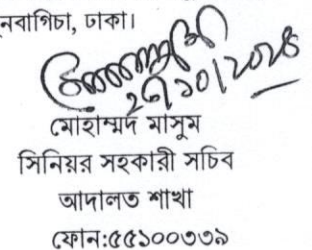 নবাগিচা, ঢাকা।
মোহাম্মদ মাসুম
সিনিয়র সহকারী সচিব
আদালত শাখা
ফোন:৫৫১০০৩৩৯